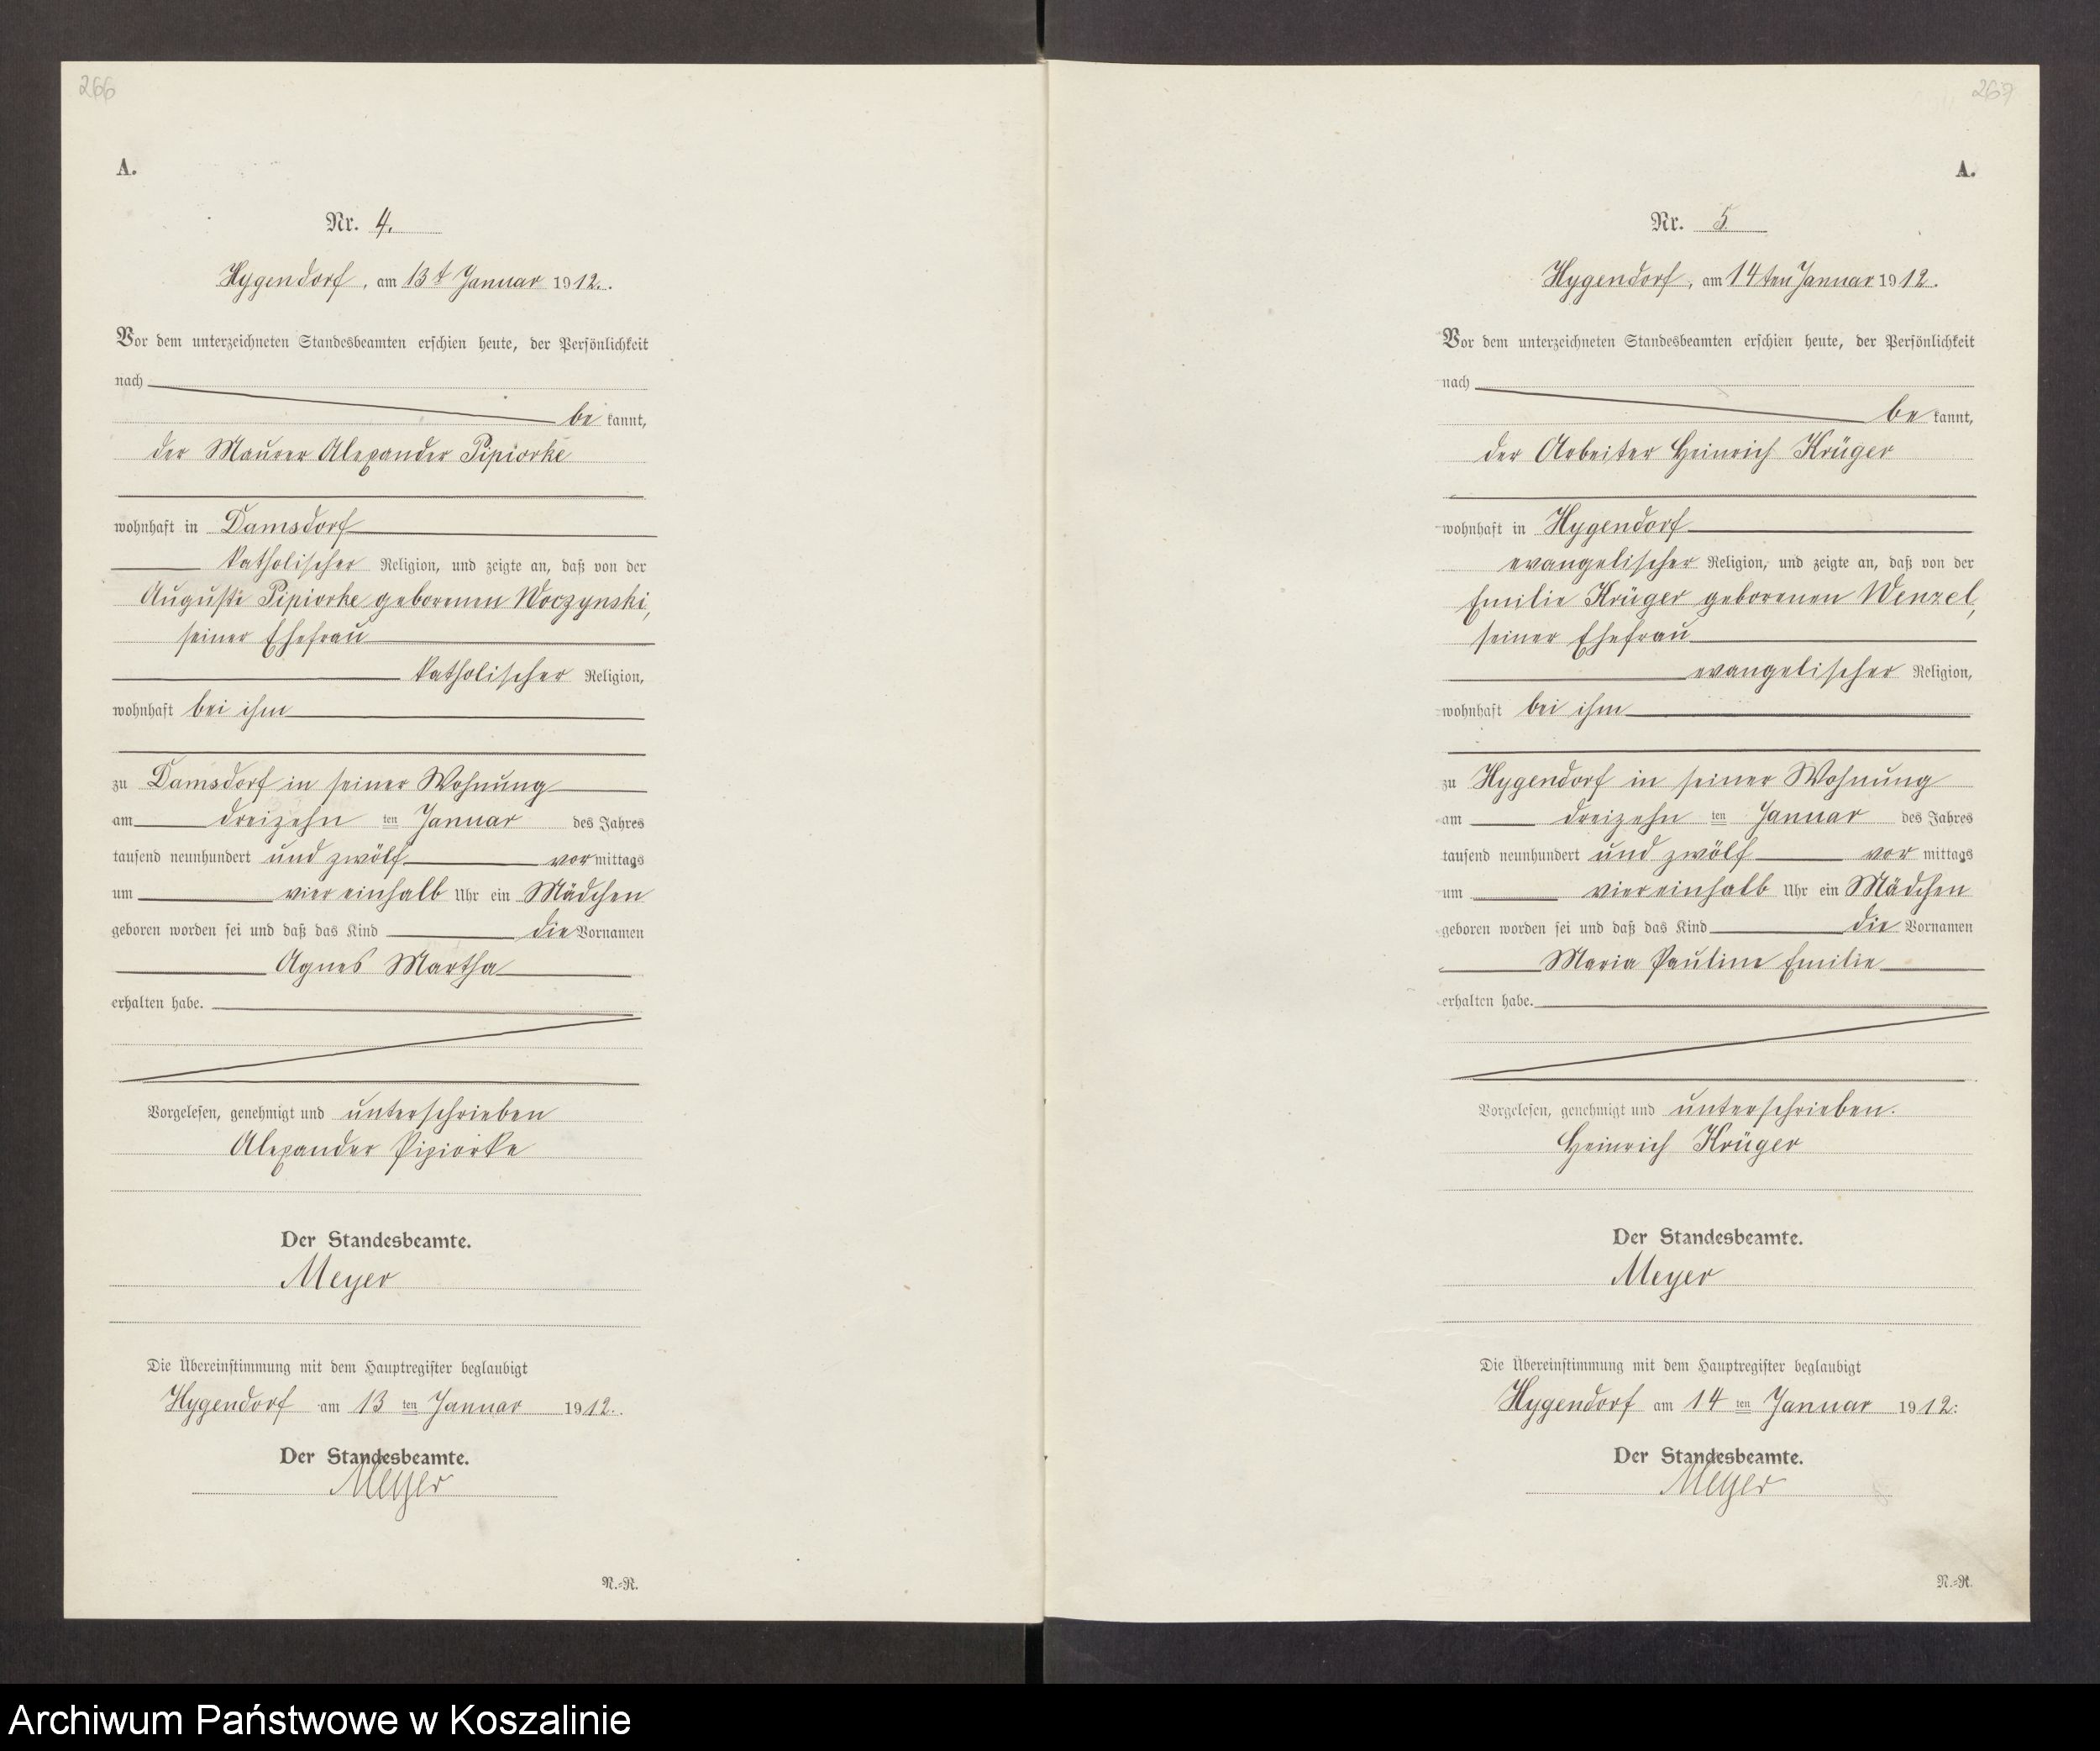 266
A.
Nr. 4.
Hygendorf, am 13t Januar 1912.
Vor dem unterzeichneten Standesbeamten erschien heute, der Persönlichkeit
nach
be kannt,
der Maurer Alexander Pipiorke
wohnhaft in Damsdorf
katholischer Religion, und zeigte an, daß von der
Auguste Pipiorke geborenen Woczynski,
seiner Ehefrau
katholischer Religion,
wohnhaft bei ihm
zu Damsdorf in seiner Wohnung
am dreizehn ten Januar des Jahres
tausend neunhundert und zwölf vor mittags
um vier einhalb Uhr ein Mädchen
geboren worden sei und daß das Kind die Vornamen
Agnes Martha
erhalten habe.
Vorgelesen, genehmigt und unterschrieben
Alexander Pipiorke
Der Standesbeamte.
Meyer
Die Übereinstimmung mit dem Hauptregister beglaubigt
Hygendorf am 13 ten Januar 1912.
Der Standesbeamte.
Meyer
N.=R.
A.
Nr. 5
Hygendorf, am 14ten Januar 1912.
Vor dem unterzeichneten Standesbeamten erschien heute, der Persönlichkeit
nach
be kannt,
der Arbeiter Heinrich Krüger
wohnhaft in Hygendorf
evangelischer Religion, und zeigte an, daß von der
Emilie Krüger geborenen Wenzel,
seiner Ehefrau
evangelischer Religion,
wohnhaft bei ihm
zu Hygendorf in seiner Wohnung
am dreizehn ten Januar des Jahres
tausend neunhundert und zwölf vor mittags
um vier einhalb Uhr ein Mädchen
geboren worden sei und daß das Kind die Vornamen
Maria Pauline Emilie
erhalten habe.
Vorgelesen, genehmigt und unterschrieben.
Heinrich Krüger
Der Standesbeamte.
Meyer
Die Übereinstimmung mit dem Hauptregister beglaubigt
Hygendorf am 14 ten Januar 1912.
Der Standesbeamte.
Meyer
N.=R.
Archiwum Państwowe w Koszalinie